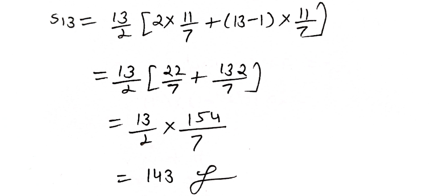 S13 = 13/2 [2×11/7 + (13-1) × 11/7]
= 13/2 [22/7 + 132/7]
= 13/2 × 154/7
= 143